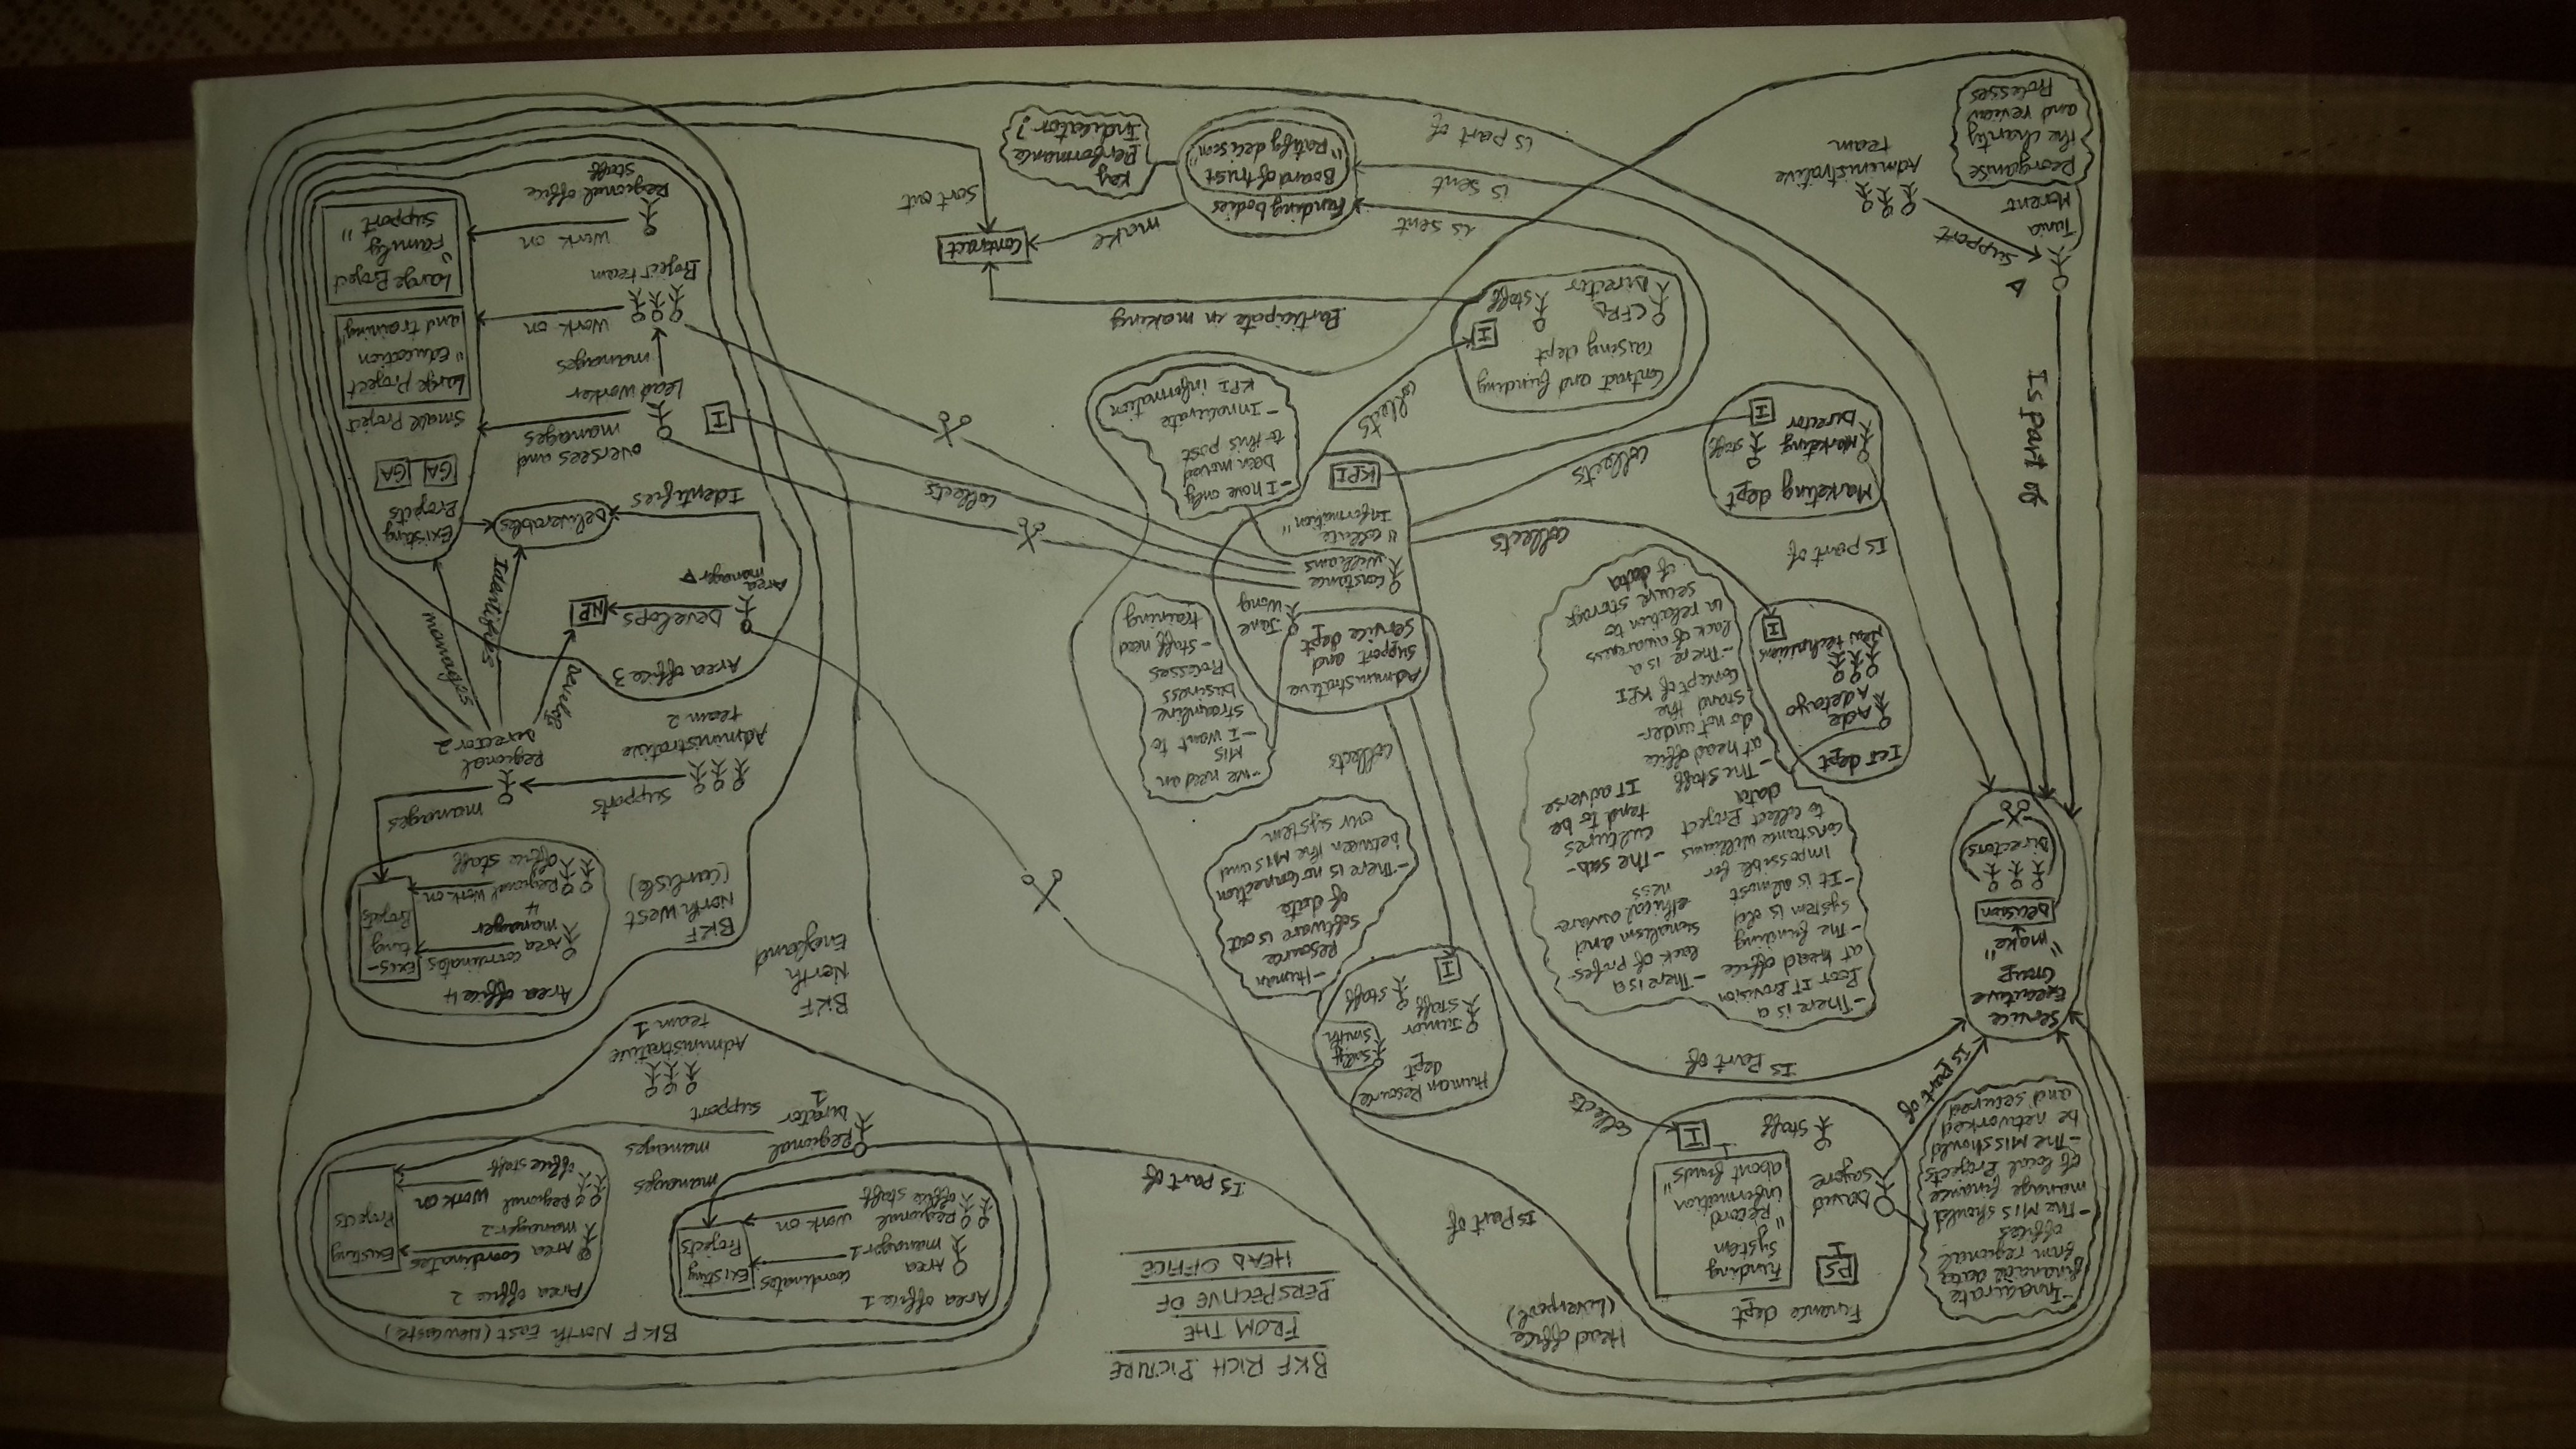 BKF RICH PICTURE
FROM THE
PERSPECTIVE OF
HEAD OFFICE
Head office
(Liverpool)
-Innacurate
financial data
from regional
offices
-The MIS should
manage finance
of local Projects
-The MIS should
be networked
and secured
Finance dept
PS
Funding
System
"Record
information
about funds"
David
Sayore
Staff
I
Is part of
collects
Is Part of
Is Part of
Is part of
Service
Executive
Group
"make"
Decision
Directors
-There is a
Poor IT Provision
at head office
-The funding
system is old
-It is almost
impossible for
Constance Williams
to collect Project
data
-The Staff
at head office
do not under-
stand the
Concept of KPI
-There is a
lack of awareness
in relation to
secure storage
of data
-There is a
lack of profes-
sionalism and
ethical aware-
ness
-The sub-
cultures
tend to be
IT adverse
Human Resource
dept
Sally
Smith
Junior
Staff
Staff
I
-Human
Resource
Software is out
of date
-There is no connection
between the MIS and
our system
ICT dept
Ade
Adetayo
New technicians
I
collects
-we need an
MIS
-I want to
streamline
business
Processes
-Staff need
training
Administrative
support and
service dept
Jane
Wong
Constance
Williams
"Collate
Information"
KPI
-I have only
been moved
to this post
-Innacurate
KPI information
collects
collects
collects
collects
Is part of
Marketing dept
Marketing
Director
Staff
I
Contract and funding
raising dept
I
CFRD
Director
Staff
Participate in making
Contract
make
Sort out
is sent
is sent
is part of
Funding bodies
Board of trust
"Ratify decision"
Key
Performance
Indicator?
Is part of
Support
Tania
Morent
Administrative
team
Reorganise
the charity
and review
Processes
BKF North East (Newcastle)
Area office 1
Area
manager 1
coordinates
Existing
Projects
Regional
office staff
work on
Area office 2
Area
manager 2
coordinates
Existing
Projects
Regional
office staff
work on
manages
manages
Regional
Director
1
support
Administrative
team 1
BKF
North
England
BKF
North West
(Carlisle)
Area office 4
Area
manager
4
coordinates
Exis-
ting
Projects
Regional
office staff
Work on
Administrative
team 2
supports
Regional
Director 2
manages
Develops
Identifies
manages
Area office 3
Area
manager
Develops
NP
Identifies
Deliverables
Existing
Projects
GA
GA
Small Project
Large Project
"Education
and training"
Large Project
"Family
support"
I
oversees and
manages
Lead Worker
manages
Project team
Work on
Regional office
staff
Work on